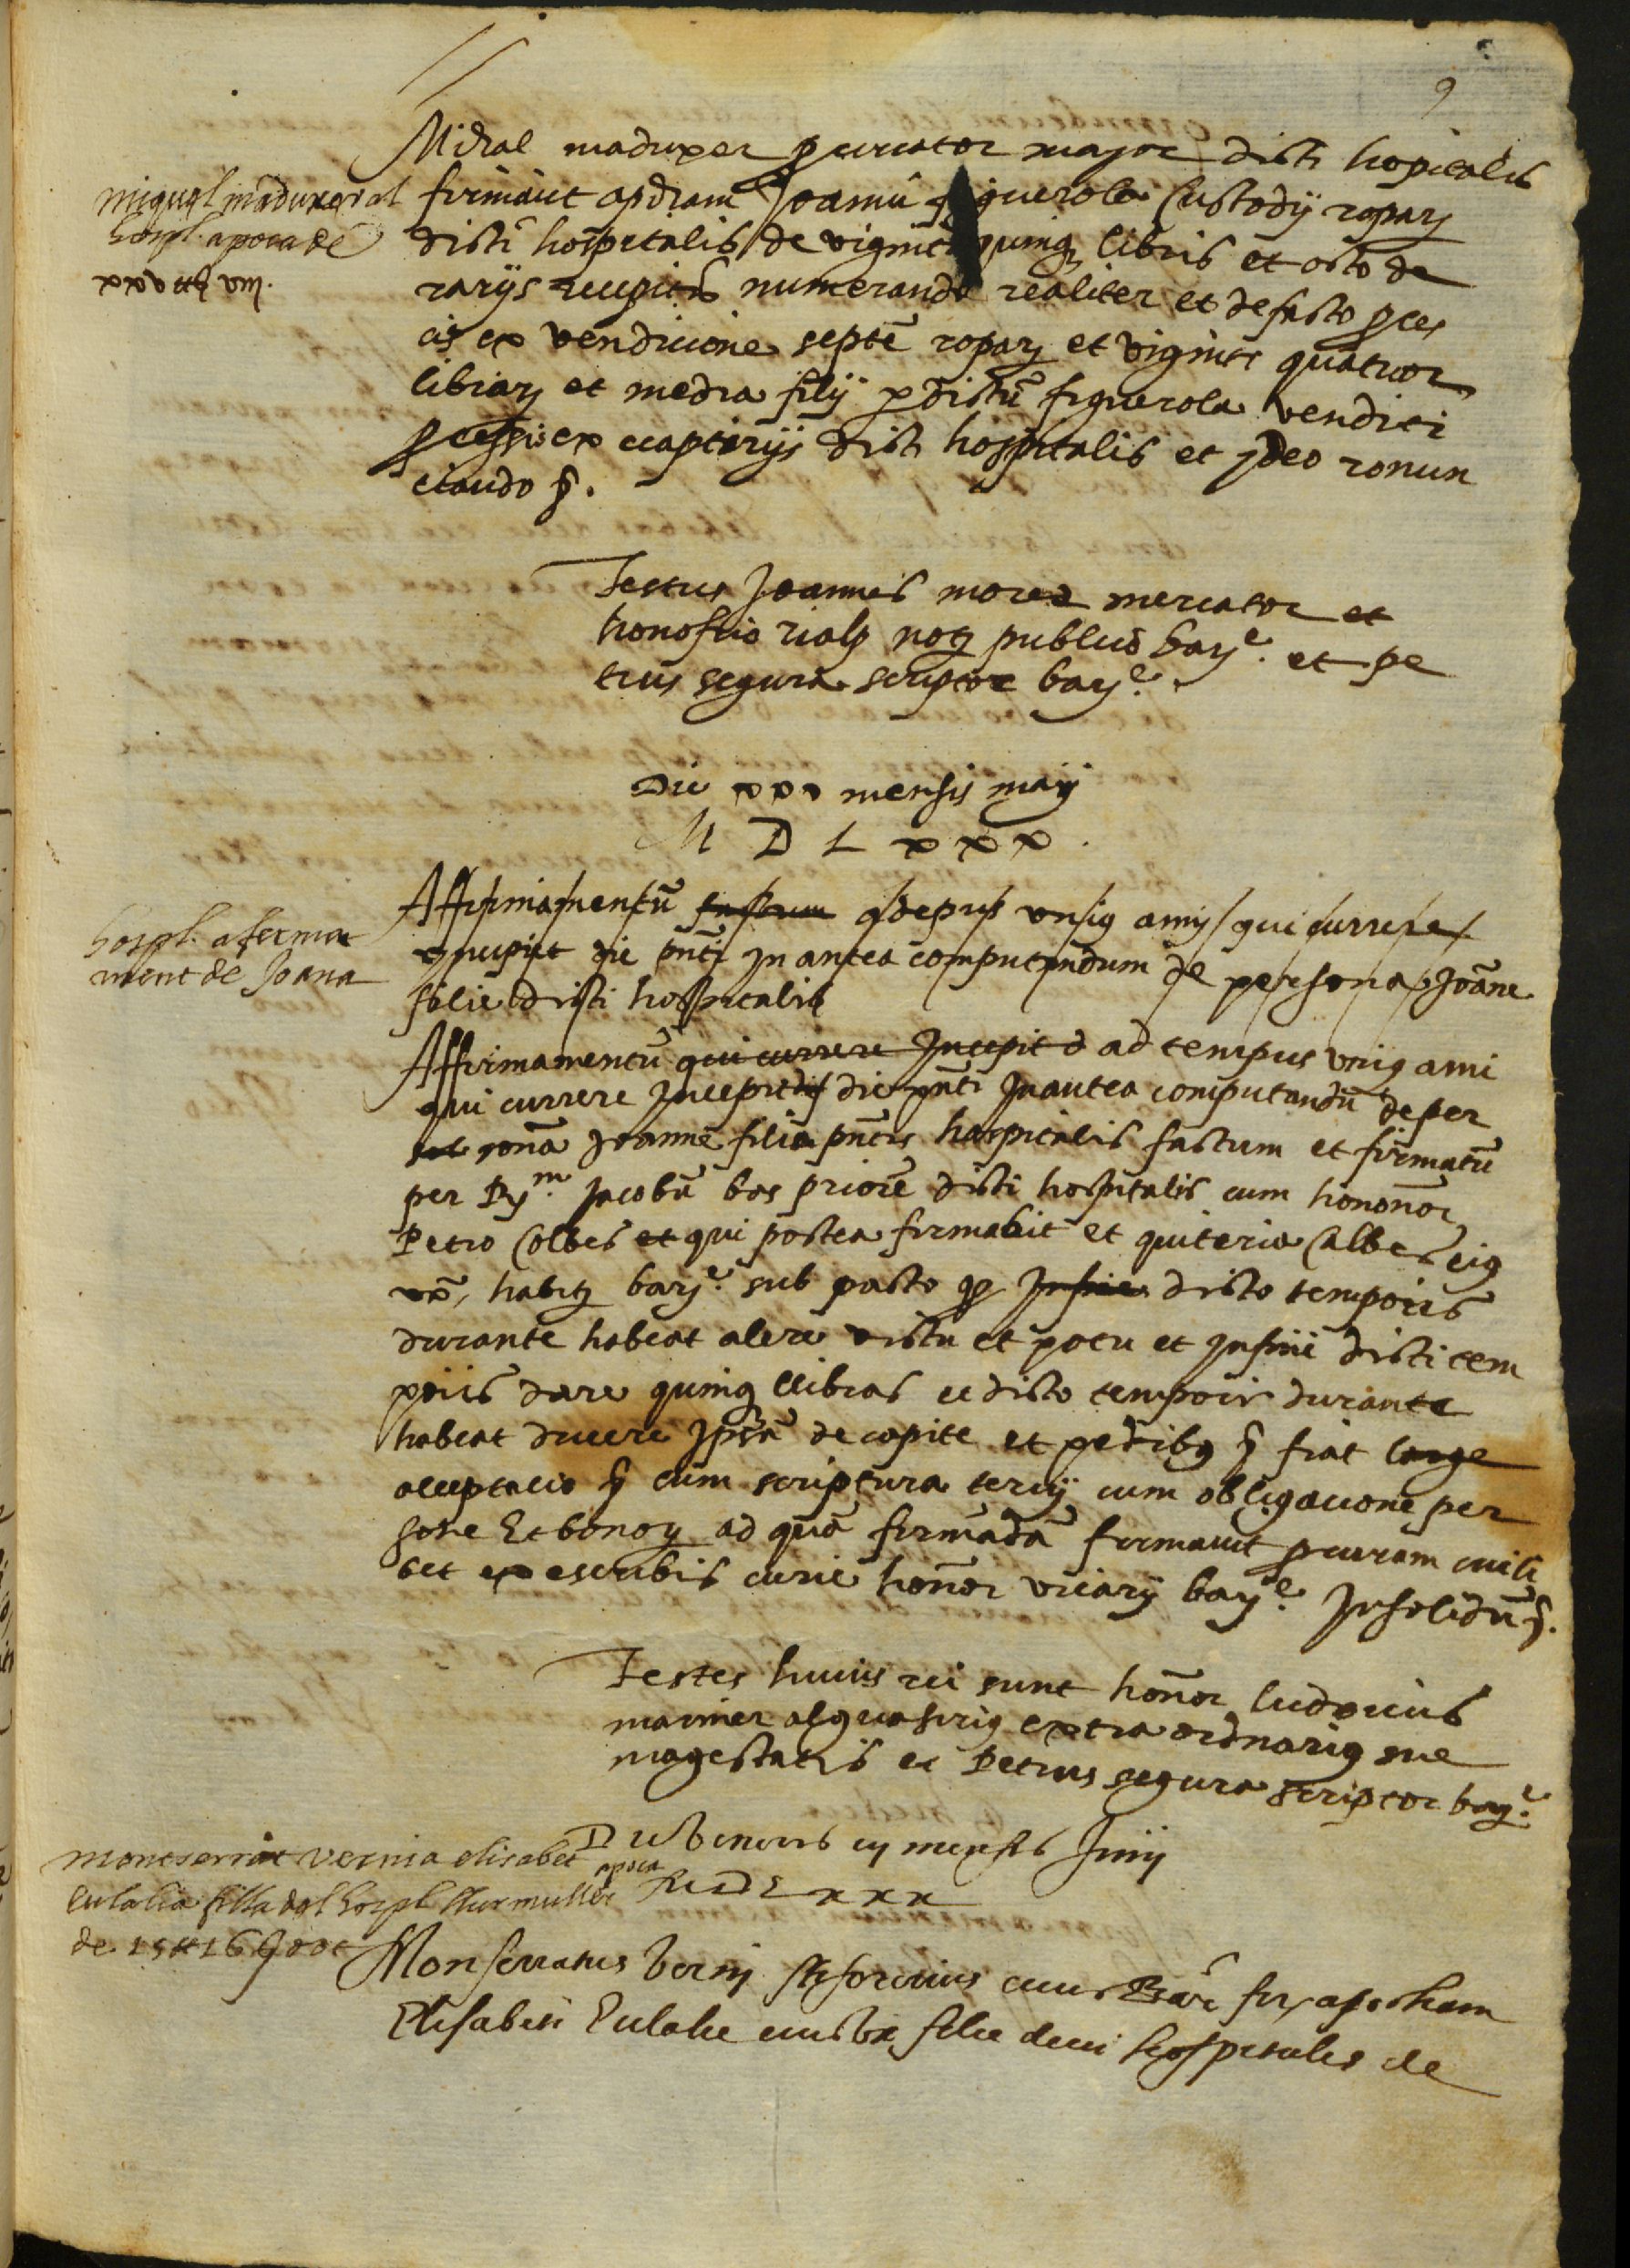 9
Michael maduxer procurator major dicti hospitalis
miquel maduxer al
hospl. apoca de
xxv ₶ viii.
firmavit apocam Joanni figuerola Custodij ropar
dicti hospitalis de viginti quinq libris et octo de
rariis receptis numerando realiter et de facto proces
cis ex vendicione septē ropar et viginti quatuor
librar et media filij per dictū figuerola venditi
processis ex captiriis dicti hospitalis et ideo renun
ciando &.
Testes Joannes mored mercator et
honofrio rialp noty publicus bar.e et pe
trus segura scriptor bar.e
Die xxx mensis maij
M D L x x x .
hospl. aferma
ment de Joana
Affirmamentū factum ad tempus unius anni qui currere
incipiet die pnti in antea computandum de persona Joane
filie dicti hospitalis
Affirmamentū qui currere Incepit d ad tempus unius anni
qui currere Incepit die pnti Inantea computandū de per
sona Joanne filie pntis hospitalis factum et firmatū
per Rm Jacobū bos priorē dicti hospitalis cum honor
Petro Calbes et qui postea firmabit et quiteria Calbes eius
ux, habit bar.e sub pacto q Infine dicto temporis
durante habeat alere victu et potu et Infine dicti tem
poris dare quinq llibras et dicto temporis durante
habeat ducere Ipsā de capite et pedibus & fiat large
acceptacio & cum scriptura tercij cum obligacione per
sone Et bonor ad quā firmādā firmavit procuram cuili
bet ex escribis curie honor vicarij bar.e Insolidū &.
Testes huius rei sunt honor ludovicus
mariner alguasirius extra ordinarius sue
magestatis et Petrus segura scriptor bar.e
Montserrat vernia elisabet
eulalia filla del hospl llur muller apoca
de 15 ₶ 16 s
Die veneris iij mensis Junij
M D L x x x
Monserratus Verni civis Bar fir apocham
Elisabeti Eulalie eius ux filie dicti hospitalis de